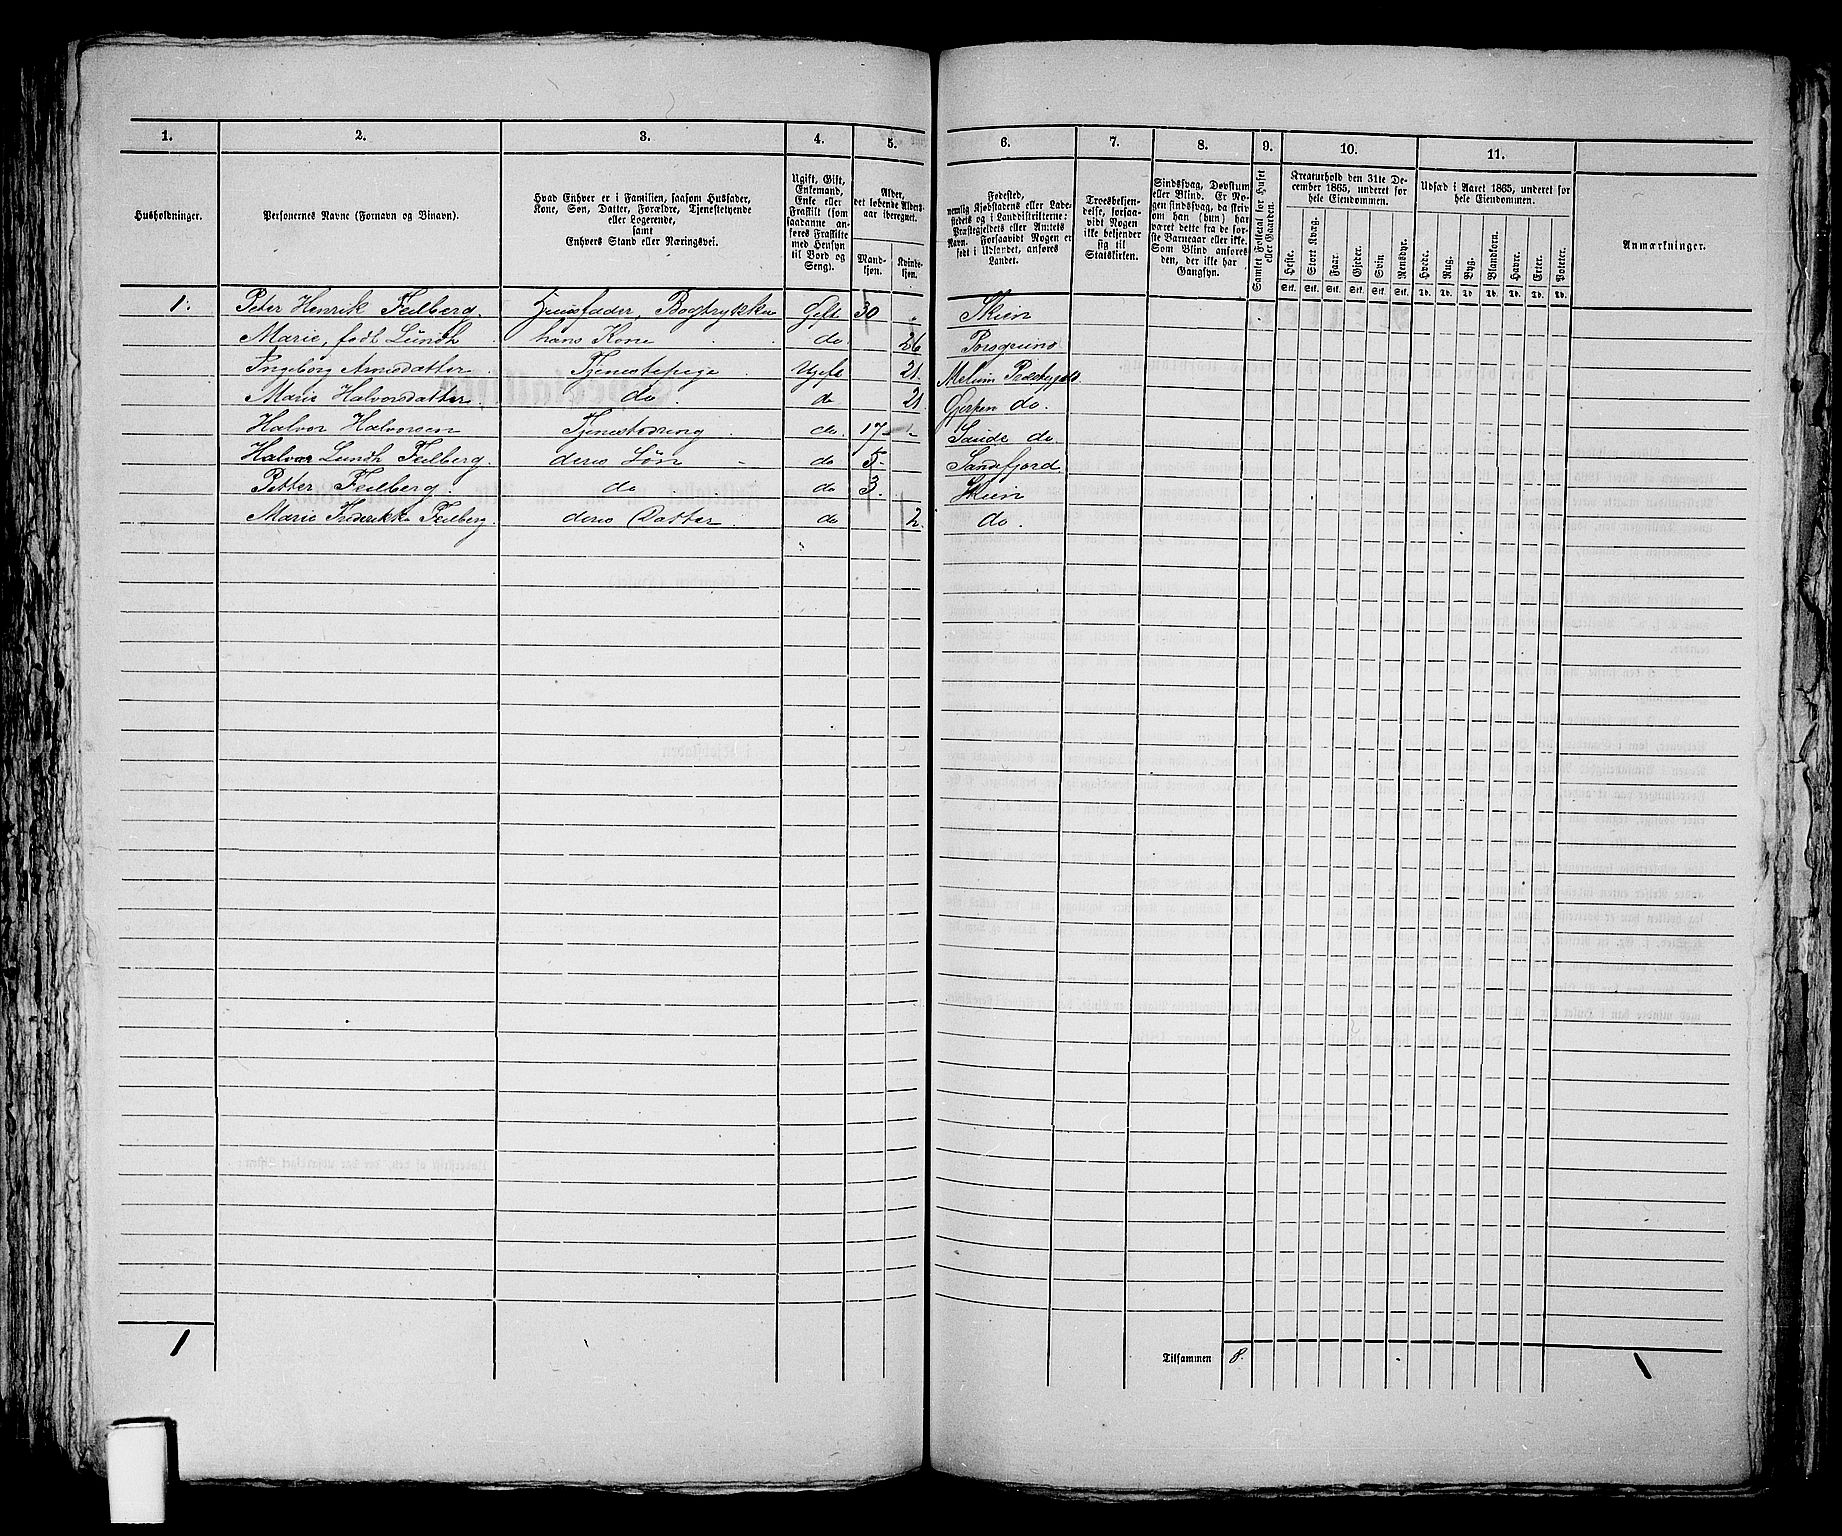 1. 2. 3. 4. 5. 6. 7. 8. 9. 10. 11.
Husholdninger.
Personernes Navne (Fornavn og Binavn).
Hvad Enhver er i Familien, saasom Husfader,
Kone, Søn, Datter, Forældre, Tjenestetyende
eller Logerende,
samt
Enhvers Stand eller Næringsvei.
Ugift, Gift,
Enkemand,
Enke eller
Fraskilt (som
saadanne an-
føres Fraskilte
med Hensyn
til Bord og
Seng).
Alder,
det løbende Alders-
aar iberegnet.
Mand-
kjøn.
Kvinde-
kjøn.
Fødested,
nemlig Kjøbstadens eller Lade-
stedets og i Landdistrikterne:
Præstegjeldets eller Amtets
Navn. Forsaavidt Nogen er
født i Udlandet, anføres
Landet.
Troesbekjen-
delse, forsaa-
vidt Nogen
ikke bekjender
sig til
Statskirken.
Sindssvag, Døvstum
eller Blind. Er No-
gen sindssvag, da skriv
om han (hun) har
været dette fra de før-
ste Barneaar eller ikke.
Som Blind anføres
den, der ikke har
Gangsyn.
Samlet Folketal for Huset
eller Gaarden.
Kreaturhold den 31te De-
cember 1865, underet for
hele Eiendommen.
Heste. Stort Kvæg. Faar. Gjeder. Svin. Rensdyr.
Stk. Stk. Stk. Stk. Stk. Stk.
Udsæd i Aaret 1865, underet for
hele Eiendommen.
Hvede. Rug. Byg. Blandkorn. Havre. Erter. Poteter.
Td. Td. Td. Td. Td. Td. Td.
Anmærkninger.
1. Peter Henrik Feilberg. Huusfader, Bogtrykker Gift 30 " Skien
Marie, født Lundh hans Kone do 26 Porsgrund
Ingeborg Arnesdatter Tjenestepige Ugift 21. Melum Præstegjeld
Marie Halvorsdatter do. do 21 Gjerpen do.
Halvor Halvorsen Tjenestedreng do. 17 " Saude do
Halvor Lundh Feilberg. deres Søn do 5. Sandefjord.
Petter Feilberg. do do 3. Skien
Marie Frederikke Feilberg. deres Datter do 2. do.
1
Tilsammen 8.
1